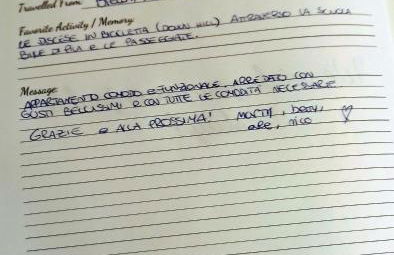 Travelled From
Favorite Activity / Memory:
LE DISCESE IN BICICLETTA (DOWN HILL) ATTRAVERSO LA SCUOLA
BIKE DI PILA E LE PASSEGGIATE.
Message
APPARTAMENTO COMODO e FUNZIONALE, ARREDATO CON
GUSTI BELLISSIMI e CON TUTTE LE COMODITÀ NECESSARIE
GRAZIE e ALLA PROSSIMA!